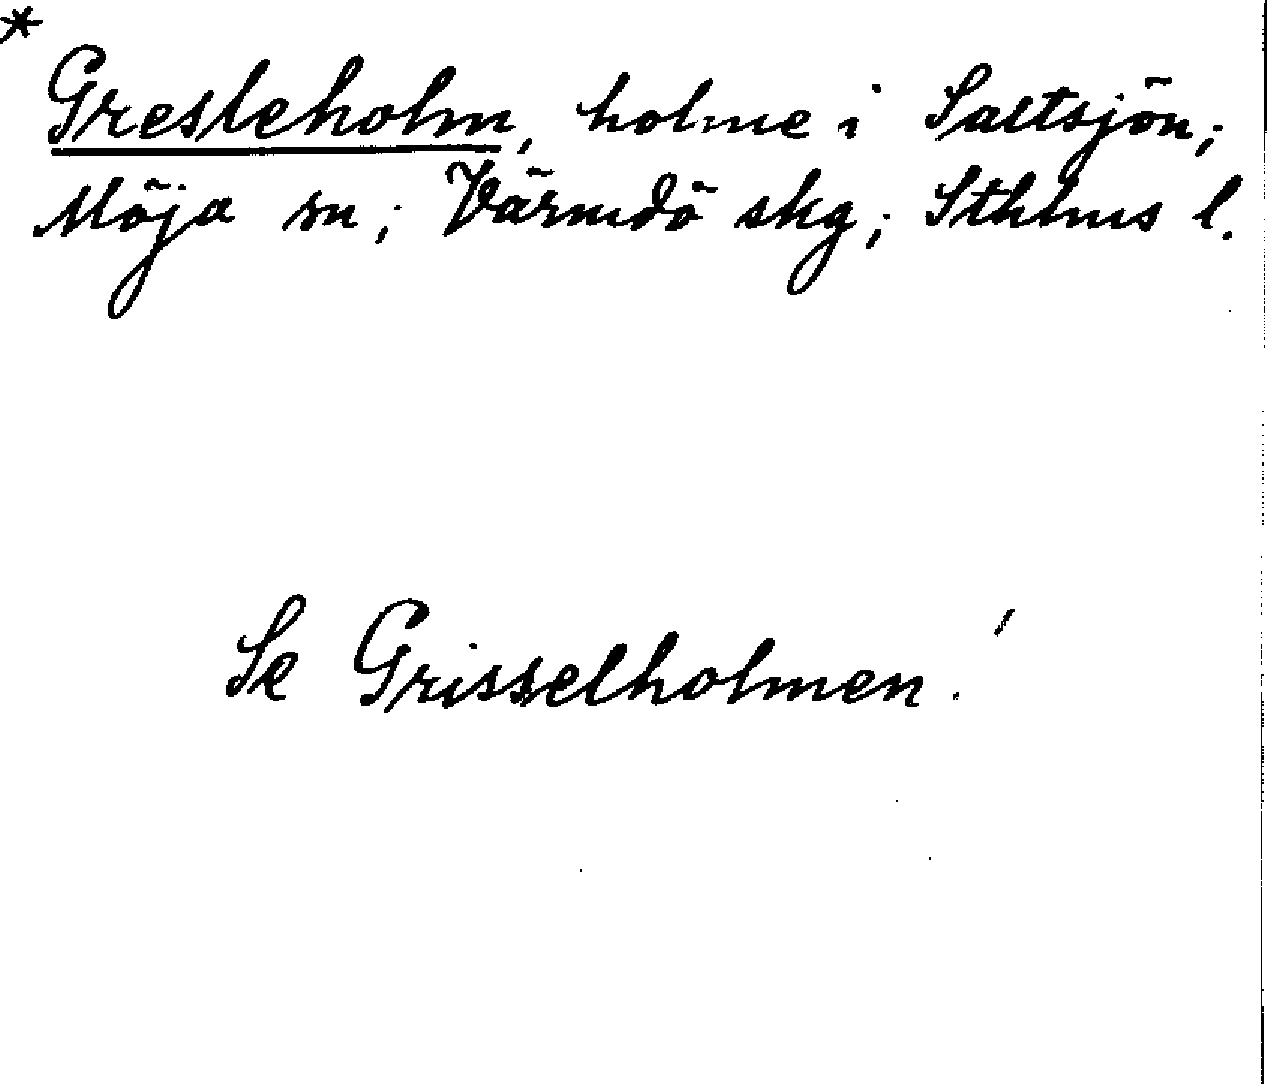 *
Gresleholm, holme i Saltsjön;
Möja sn; Värmdö skg; Sthlms l.
Se Grisselholmen!